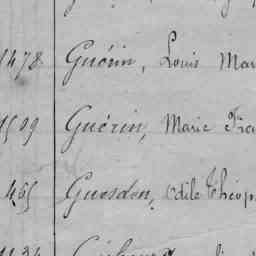 1478 Guérin, Louis Mar
1509 Guérin, Marie Fra
465 Guesdon, Odile Théop